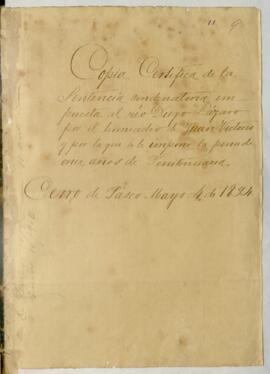 11
Copia Certifica de la
Sentencia condenatoria im
puesta al reo Diego Lázaro
por el homicidio de Juan Victorio
y por la que se le impone la pena de
once años de Penitenciaria.
Cerro de Pasco Mayo 4 de 1824